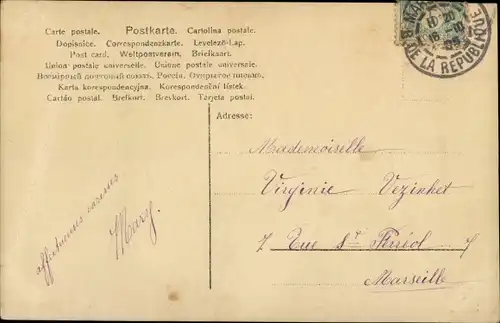 Carte postale. Postkarte. Cartolina postale.
Dopisnice. Correspondenzkarte. Levelező-Lap.
Post card. Weltpostverein. Briefkaart.
Union postale universelle. Unione postale universale.
Всемірный почтовый союзъ. Россія. Открытое письмо.
Karta korespondencyjna. Korespondenční lístek.
Cartão postal. Brefkort. Brevkort. Tarjeta postal.
R. DE LA REPUBLIQUE
Adresse:
Mademoiselle
Virginie Vezinhet
7 Rue St Ferréol 7
Marseille
affectueuses caresses
Mary.